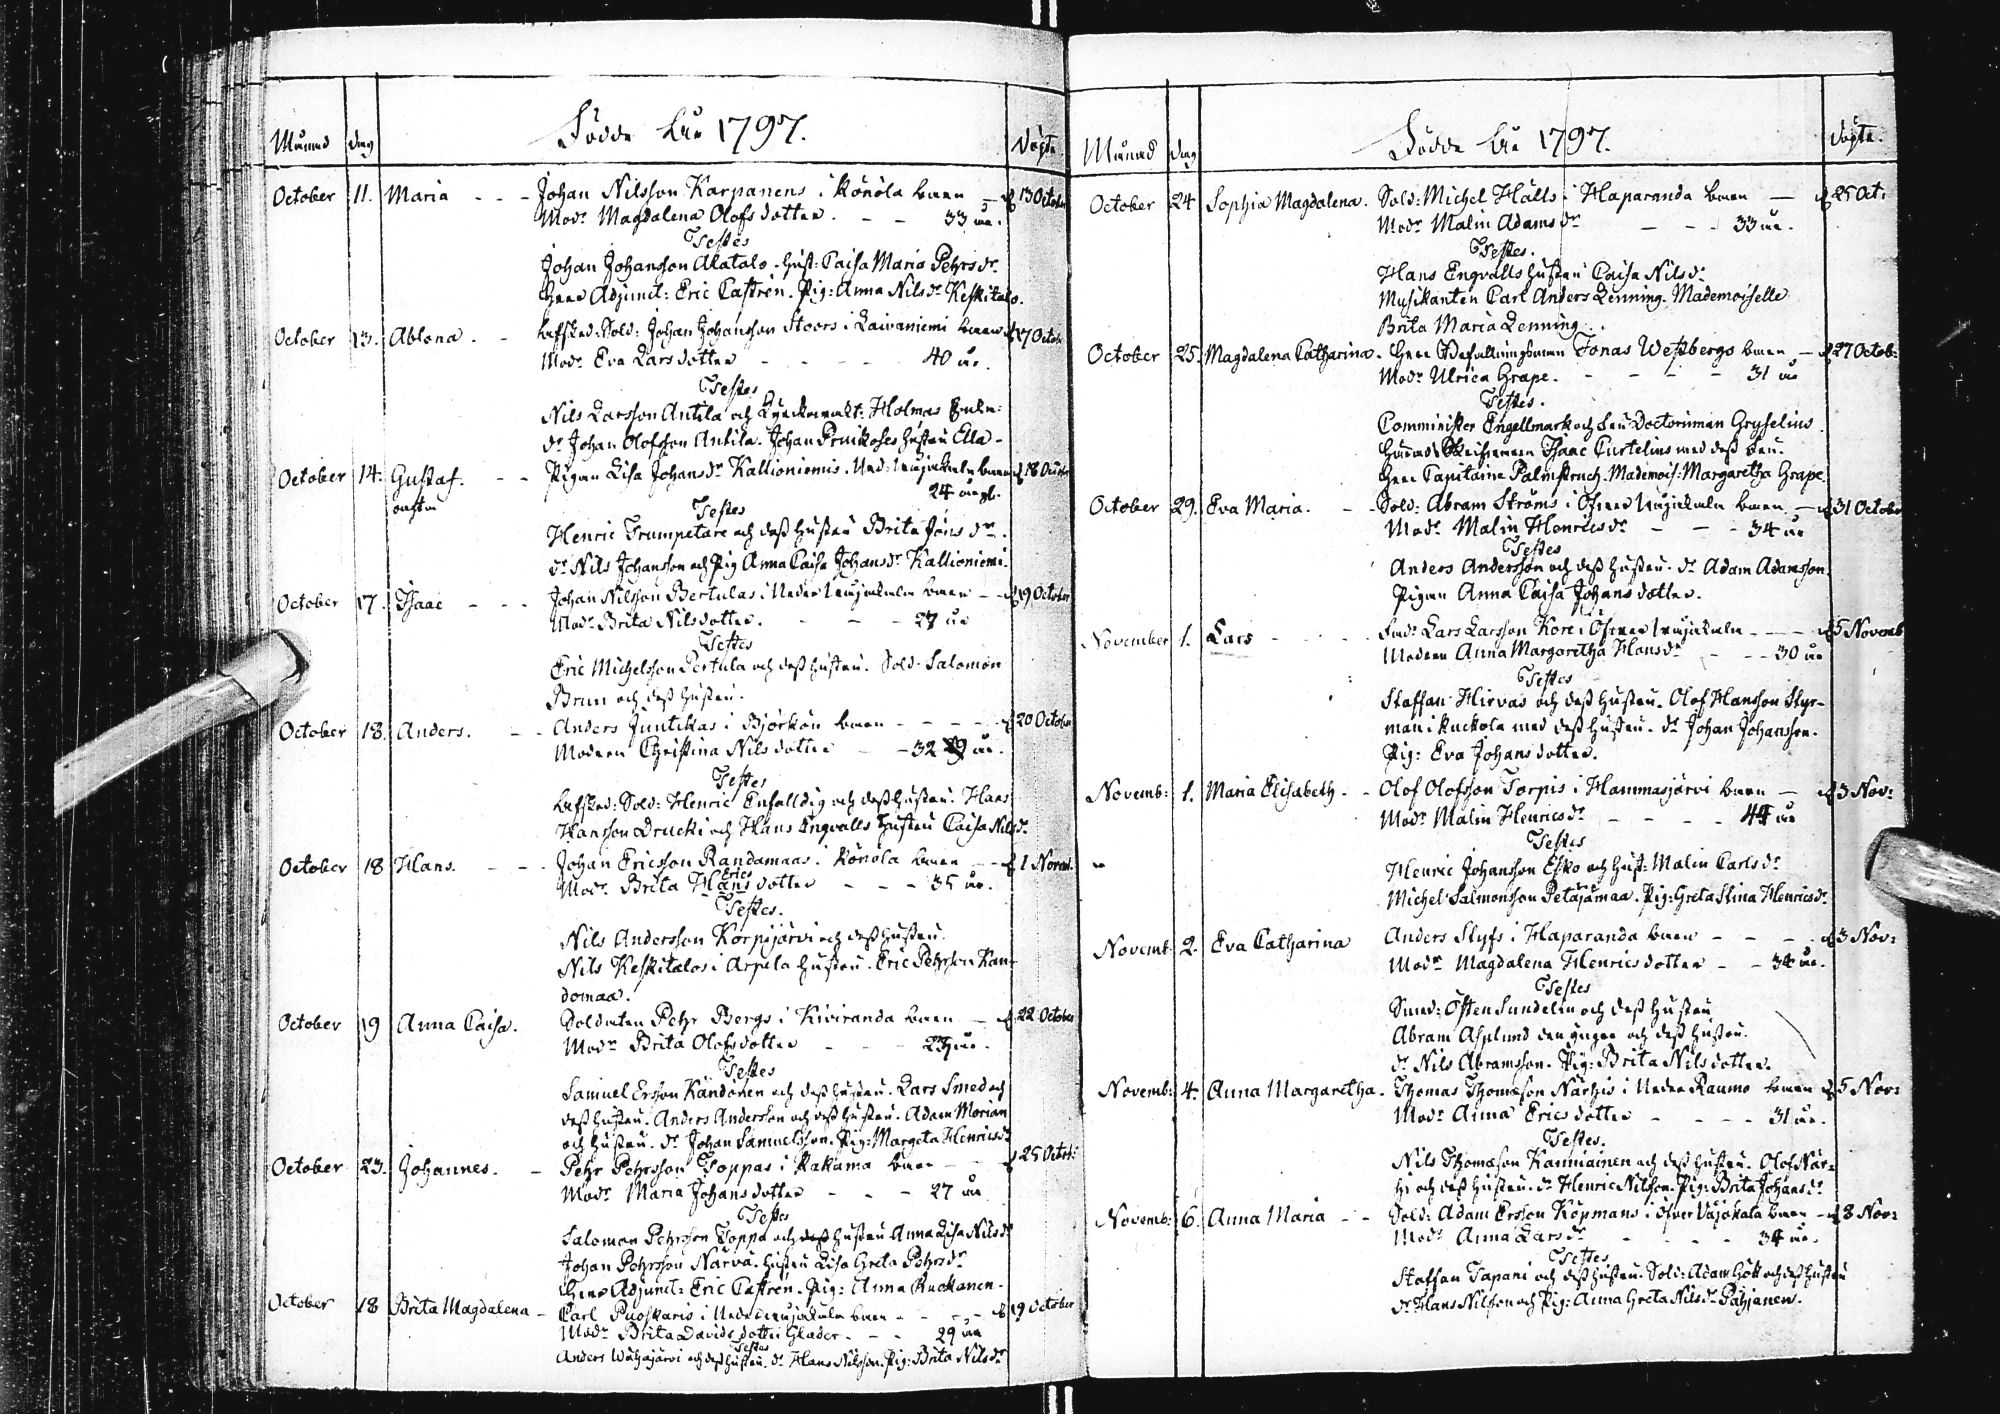 Födde åhr 1797.
Månad dag Döpte
October 11. Maria - - - Johan Nilsson Karpanens i Könöla barn - d 13 October
Modr Magdalena Olofsdotter. - - 33 år.
Testes
Johan Johansson Alatalo. hust: Caisa Maria Pehrsdr.
Herr Adjunct: Eric Castrén. Pig: Anna Nilsdr Keskitalo.
October 13. Ablona. - Afsked: Sold: Johan Johansson Stoors i Laivaniemi barn d 17 Octob:
Modr Eva Larsdotter - - - - 40 år.
Testes
Nils Larsson Antila och Holmas
dr Johan Olofsson Antila. Johan hustru Ella -
October 14. Gustaf. - - Pigan Lisa Johansdr Kallioniemis. Ned: barn d 18 October
oäkta 24 år gl.
Testes
Henric Trumpetare och dess hustru Brita Jönsdr.
dr Nils Johansson och Pig Anna Caisa Johansdr Kallioniemi.
October 17. Isaac - - - Johan Nilsson Bertulas i Neder barn - d 19 October
Modr Brita Nilsdotter. - - - 27 år
Testes
Eric Michelsson Pertula och dess hustru. Sold: Salomon
Brun och dess hustru.
October 18. Anders. - - Anders Juntikas i Björkön barn - - - - d 20 October
Modern Christina Nilsdotter - - 32 år.
Testes
Afsked: Sold: Henric Enfalldig och dess hustru. Hans
Hansson Drucki och Hans Engvalls hustru Caisa Nilsdr.
October 18 Hans. - - - Johan Ericsson Randamaas i Könola barn - - d 1 Novem.
Erics
Modr. Brita Hansdotter - - - 35 år.
Testes.
Nils Andersson Korpijärvi och dess hustru.
Nils Keskitalos i Arpela hustru. Eric Pehrsson Ran-
domaa.
October 19 Anna Caisa. Soldaten Pehr Bergs i Kiviranda barn - d 22 October
Modr Brita Olofsdotter - - - år.
Testes
Samuel Ersson Kändönen och dess hustru. Lars Smed och
dess hustru. Anders Andersson och dess hustru. Adam Morian
och hustru. dr Johan Samuelsson. Pig: Margeta Henricsdr
October 23. Johannes. - Pehr Pehrsson Toppas i Kakama barn - - d 25 Octob:
Modr Maria Johansdotter - - - 27 år
Testes
Salomon Pehrsson Toppa och dess hustru Anna Lisa Nilsdr
Johan Pehrsson Närvä. hustru Lisa Greta Pehrsdr
Herr Adjunct: Eric Castrén. Pig: Anna Ruokanen.
October 18 Brita Magdalena - Carl Puoskaris i barn - - - d 19 October
Modr Brita Davidsdotter Glader. - - 29 år
Testes
Anders Wähäjärvi och dess hustru. dr Hans Nilsson. Pig: Brita Nilsdr
Födde år 1797.
Månad dag Döpte.
October 24 Sophia Magdalena. Sold: Michel Hälls i Haparanda barn - d 25 Oct:
Modr Malin Adamsdr - - - 33 år.
Testes.
Hans Engvalls hustru Caisa Nilsdr
Musikanten Carl Anders Lenning. Mademoiselle
Brita Maria Lenning.
October 25. Magdalena Catharina. Herr Befallningsman Jonas Westbergs barn - d 27 Octob:
Modr Ulrica Grape. - - - - 31 år
Testes.
Comminister Engellmark och Fru Doctorinnan Gryselius
Isaac Curtelius med dess fru.
Herr Capitaine Palmstruch. Mademois: Margaretha Grape.
October 29. Eva Maria. - - Sold: Abram Ströms i Öfver barn - d 31 October
Modr Malin Henricsdr - - - 34 år
Testes
Anders Andersson och dess hustru. dr Adam Adamsson.
Pigan Anna Caisa Johansdotter.
November 1. Lars - - - - Lars Larsson Kore i Öfver - - - d 5 Novemb
Modern Anna Margaretha Hansdr - - - 30 år
Testes
Staffan Hirvas och dess hustru. Olof Hansson Styr-
man i Kuckola med dess hustru. dr Johan Johansson.
Pig: Eva Johansdotter.
Novemb: 1. Maria Elisabeth. - - Olof Olofsson Torpis i Hammasjärvi barn - d 3 Nov:
Modr Malin Henricsdr - - - - 44 år
Testes
Henric Johansson Esko och hust: Malin Carlsdr
Michel Salmonsson Petäjämaa. Pig: Greta Stina Henricsdr.
Novemb: 2. Eva Catharina Anders Slyfs i Haparanda barn - - - d 3 Nov:
Modr Magdalena Henricsdotter - - 34 år.
Testes
Smed: Östen Sundelin och dess hustru
Abram Asplund den yngre och dess hustru.
dr Nils Abramsson. Pig: Brita Nilsdotter.
Novemb: 4. Anna Margaretha. Thomas Thomæson Närhis i Neder Raumo barn d 5 Nov:
Modr Anna Ericsdotter - - - - 31 år.
Testes.
Nils Thomæson Kanniainen och dess hustru. Olof När-
hi och dess hustru. dr Henric Nilsson. Pig: Brita Johansdr
Novemb: 6. Anna Maria - - Sold: Adam Ersson Köpmans i Öfver Vojakala barn - d 8 Nov:
Modr Anna Larsdr - - - - 34 år.
Testes
Staffan Tapani och dess hustru. Sold: Adam Gök och dess hustru
dr Hans Nilsson och Pig: Anna Greta Nilsdr Päijänen.